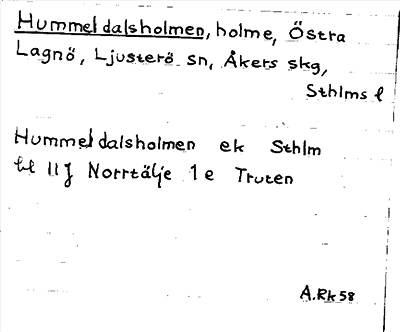 Hummeldalsholmen, holme, Östra
Lagnö, Ljusterö sn, Åkers skg,
Sthlms l
Hummeldalsholmen ek Sthlm
bl 11J Norrtälje 1e Truten
A.Rk 58